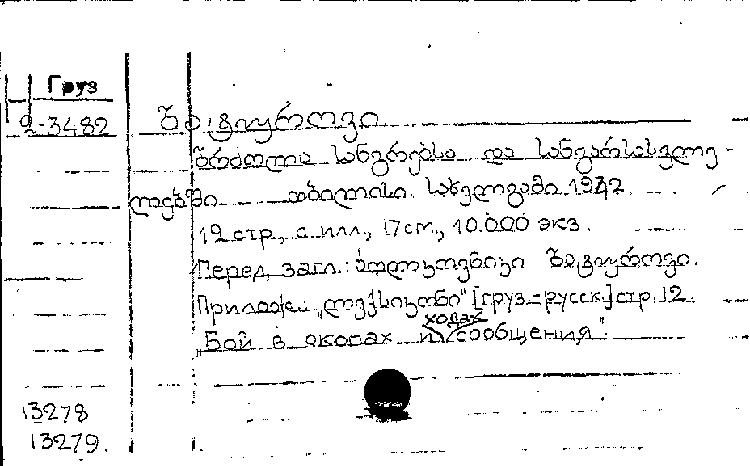 Груз
2-3482
ბრძოლა სანგრებსა და სანგარსასვლე-
ლებში თბილისი. სახელგამი. 1942.
12 стр., с илл., 17 см., 10.000 экз.
Перед загл.: პოლკოვნიკი
Прилож: „ლექსიკონი" [груз-русск.] стр. 12.
„Бой в окопах и ходах сообщения".
13278
13279.